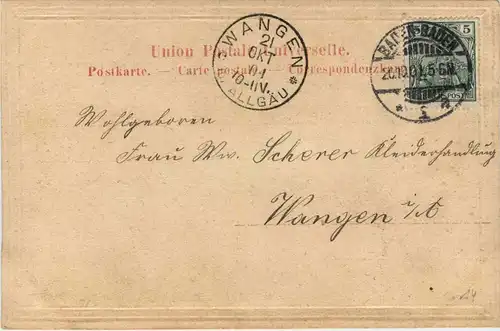 WANGEN
21
OKT
01
10-11V.
I. ALLGÄU
BADEN-BADEN
20.10.01.5-6N.
* 1 a
5
Union Postale Universelle.
Postkarte. — Carte postale. — Correspondenzkarte.
Wohlgeboren
Frau Ww. Scherer Kleiderhandlung
Wangen i/A